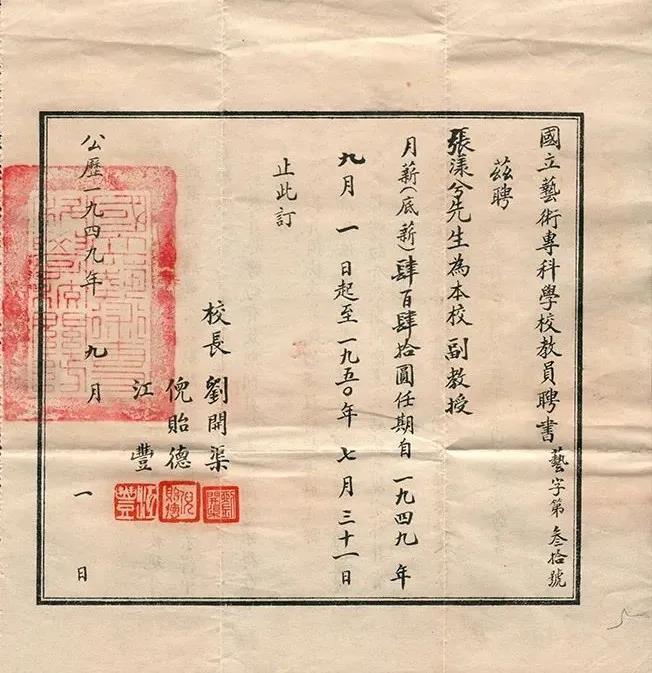 國立藝術專科學校教員聘書 藝字第叁拾號
茲聘
張漾兮先生為本校副教授
月薪(底薪)肆百肆拾圓任期自一九四九年
九月一日起至一九五〇年七月三十一日
止此訂
校長 劉開渠
倪貽德
江豐
公歷一九四九年九月一日